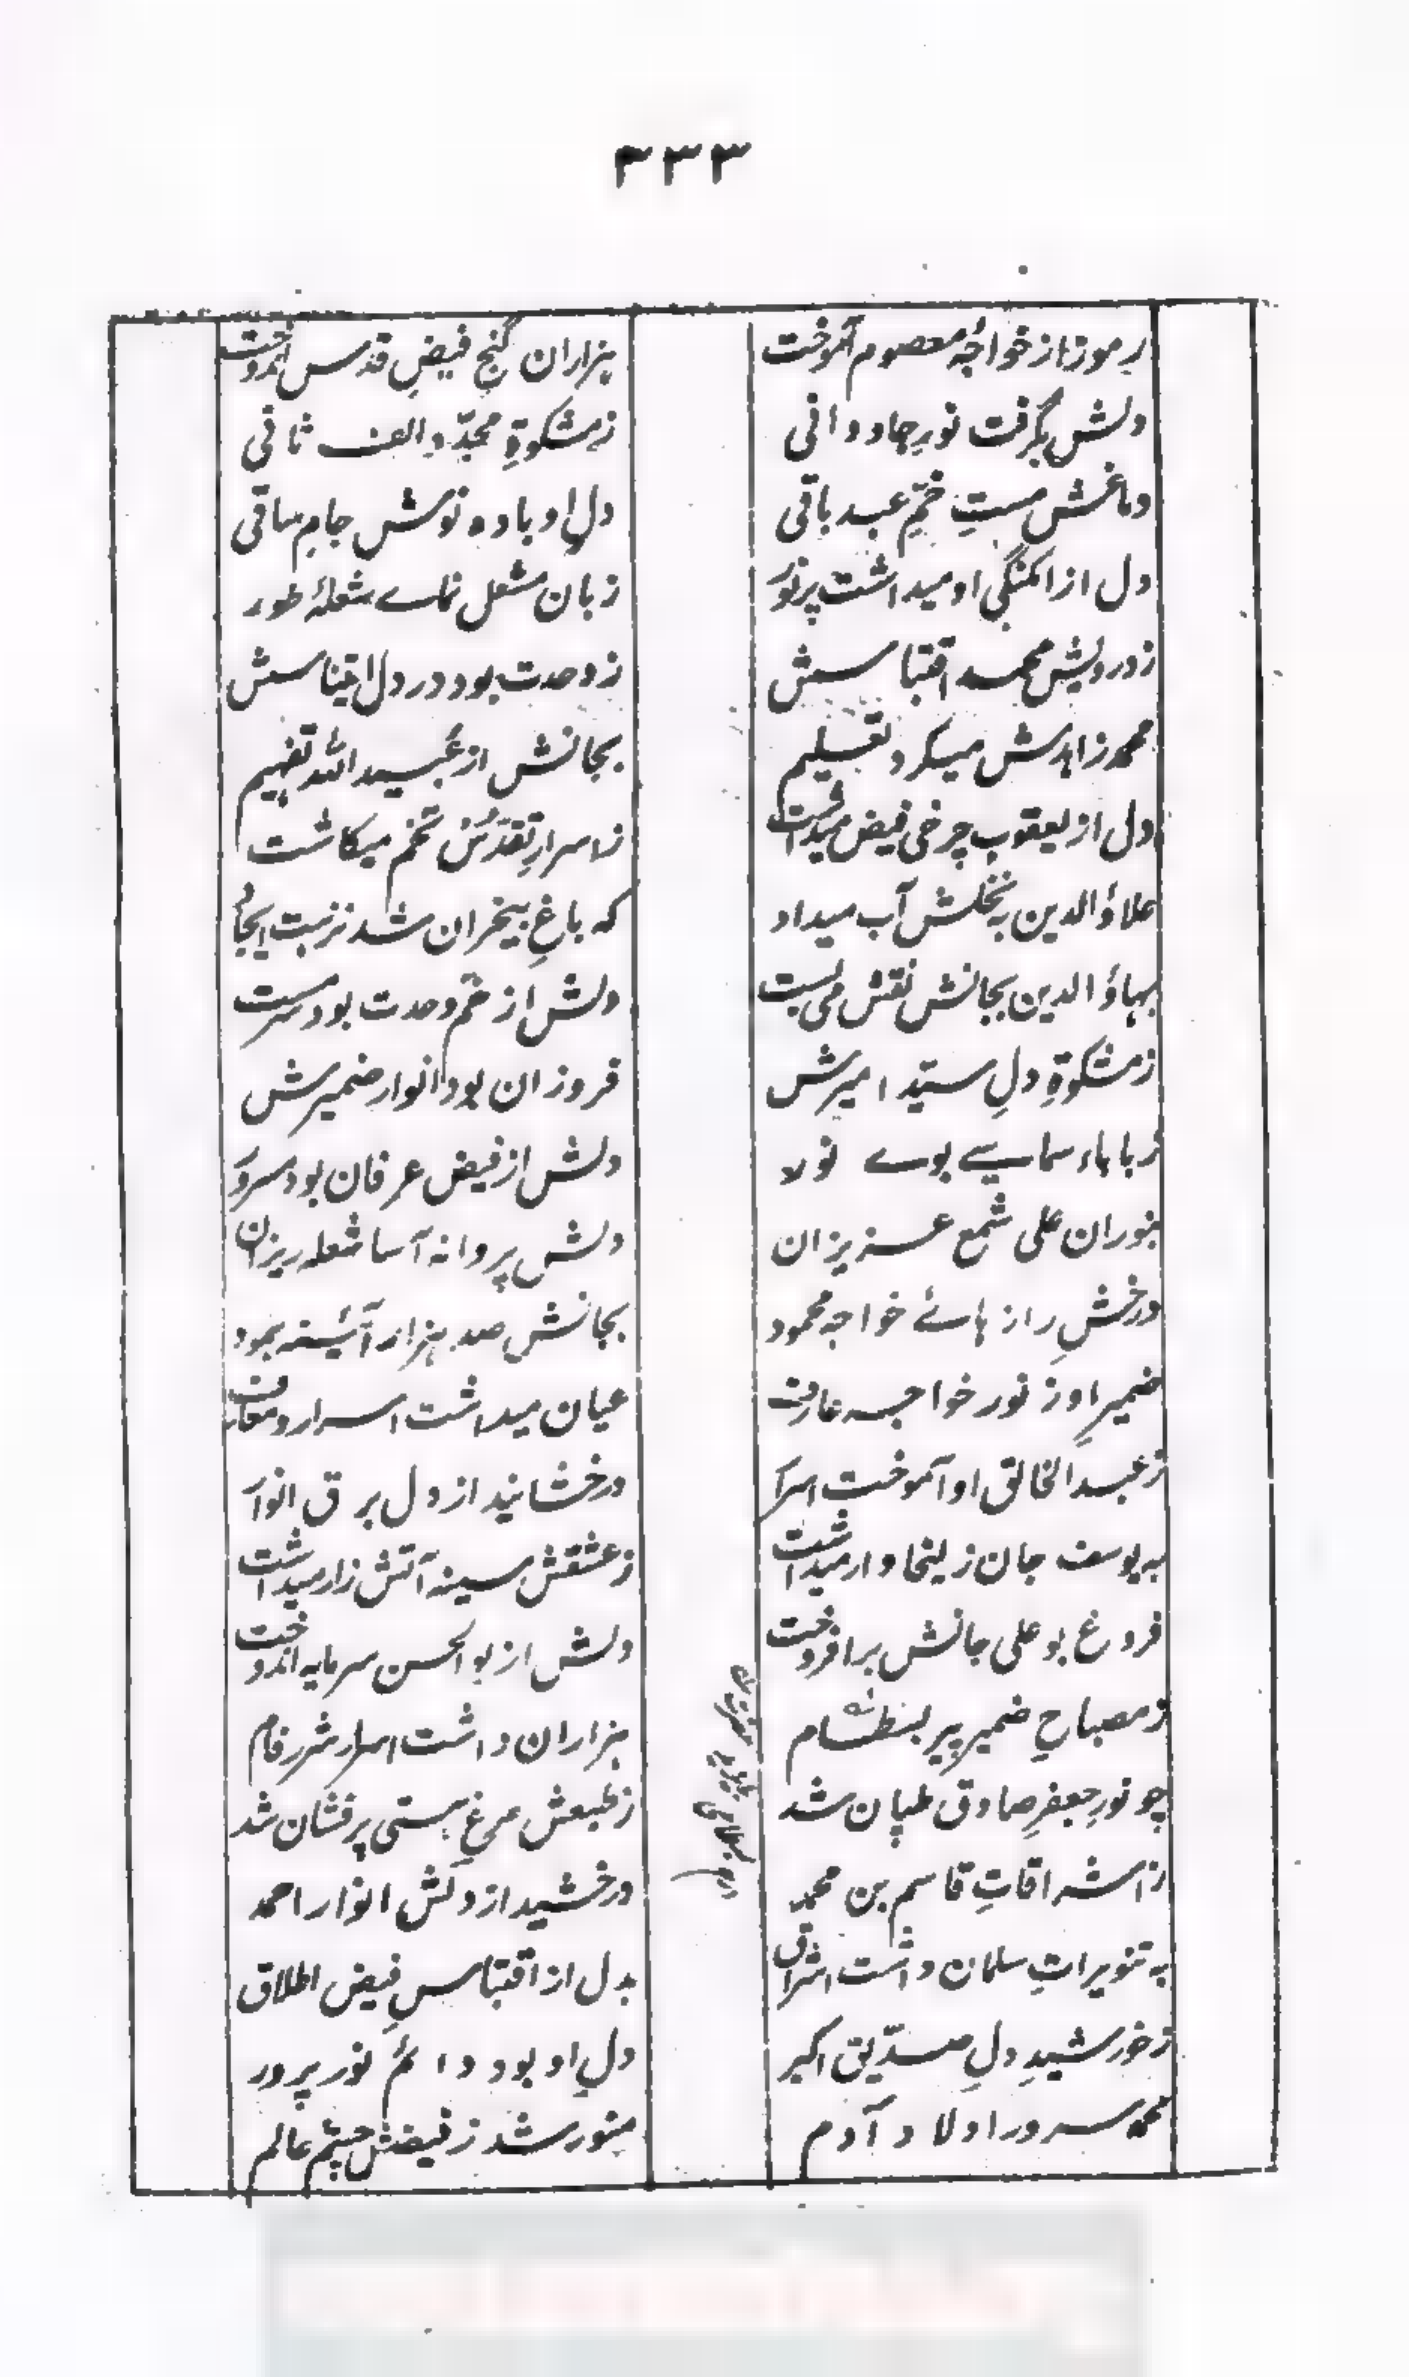 ۳۳۳
رموزناز خواجۂ معصوم آموخت
ہزاران گنجِ فیضِ قدس اندوخت
دلش بگرفت نورِ جاودانی
زمشکوۃِ مجدّد الف ثانی
دماغش مستِ خمِّ عبد باقی
دلِ او بادہ نوش جامِ ساقی
دل از امکنگی او میداشت پرنور
زبان مشعل نماے شعلۂ طور
زدرویش محمد اقتباسش
زوحدت بود در دل اقتباسش
محمد زاہدش میکرد تعلیم
بجانش از عبید اللہ تفہیم
دل از یعقوب چرخی فیض میداشت
ز اسرارِ تقدّس تخم میکاشت
علاؤالدین بہ نخلش آب میداد
کہ باغِ بیخزان شد نزہت ایجاد
بہاؤالدین بجانش نقش می بست
دلش از خم وحدت بود سرمست
زمشکوۃِ دلِ سیّد امیرش
فروزان بود انوار ضمیرش
زباباء سماسیے بوے نور
دلش از فیض عرفان بود مسرور
بنوران علی شمع عزیزان
دلش پروانہ آسا شعلہ ریزان
درخشِ رازہائے خواجہ محمود
بجانش صد ہزار آئینہ بنمود
ضمیرِ او ز نور خواجہ عارف
عیان میداشت اسرار و معارف
زعبدالخالق او آموخت اسرار
درخشانید از دل برق انوار
بہ یوسف جان زلیخا وار میداشت
زعشقش سینہ آتش زار میداشت
فروغ بوعلی جانش برافروخت
دلش از بوالحسن سرمایہ اندوخت
زمصباحِ ضمیرِ پیر بسطام
ہزاران داشت اسرار شررفام
چو نورِ جعفرِ صادق طپان شد
زطبعش مرغِ ہستی پرفشان شد
زاشراقاتِ قاسم بن محمد
درخشید از دلش انوار احمد
بہ تنویراتِ سلمان داشت اشراق
بدل از اقتباسِ فیض اطلاق
زخورشیدِ دلِ صدّیق اکبر
دلِ او بود دائم نور پرور
محمد سرور اولاد آدم
منور شد ز فیضش چشم عالم